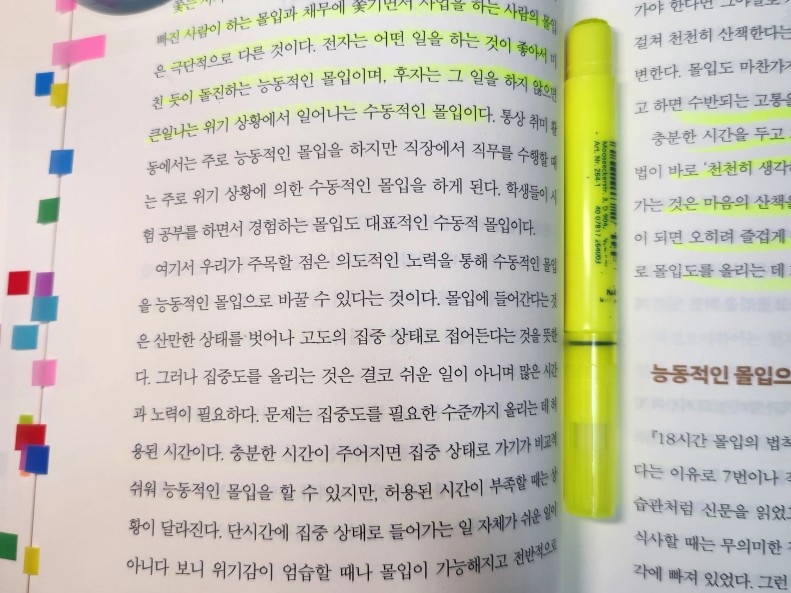 쫓는 사
빠진 사람이 하는 몰입과 채무에 쫓기면서 사업을 하는 사람의 몰입
은 극단적으로 다른 것이다. 전자는 어떤 일을 하는 것이 좋아서 미
친 듯이 돌진하는 능동적인 몰입이며, 후자는 그 일을 하지 않으면
큰일나는 위기 상황에서 일어나는 수동적인 몰입이다. 통상 취미 활
동에서는 주로 능동적인 몰입을 하지만 직장에서 직무를 수행할 때
는 주로 위기 상황에 의한 수동적인 몰입을 하게 된다. 학생들이 시
험 공부를 하면서 경험하는 몰입도 대표적인 수동적 몰입이다.
여기서 우리가 주목할 점은 의도적인 노력을 통해 수동적인 몰입
을 능동적인 몰입으로 바꿀 수 있다는 것이다. 몰입에 들어간다는 것
은 산만한 상태를 벗어나 고도의 집중 상태로 접어든다는 것을 뜻한
다. 그러나 집중도를 올리는 것은 결코 쉬운 일이 아니며 많은 시간
과 노력이 필요하다. 문제는 집중도를 필요한 수준까지 올리는 데 허
용된 시간이다. 충분한 시간이 주어지면 집중 상태로 가기가 비교적
쉬워 능동적인 몰입을 할 수 있지만, 허용된 시간이 부족할 때는 상
황이 달라진다. 단시간에 집중 상태로 들어가는 일 자체가 쉬운 일이
아니다 보니 위기감이 엄습할 때나 몰입이 가능해지고 전반적으로
Art. Nr. 264-1
가야 한다면
걸쳐 천천히 산책한다는
변한다. 몰입도 마찬가지
고 하면 수반되는 고통을
충분한 시간을 두고
법이 바로 '천천히 생각
가는 것은 마음의 산책을
이 되면 오히려 즐겁게
로 몰입도를 올리는 데
능동적인 몰입으
『18시간 몰입의 법칙
다는 이유로 7번이나
습관처럼 신문을 읽었
식사할 때는 무의미한
각에 빠져 있었다. 그런